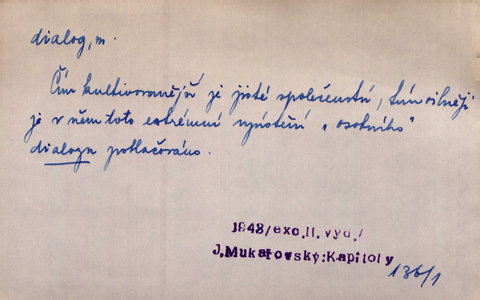 dialog, m.
Čím kultivovanější je jisté společenství, tím silněji
je v něm toto extrémní vyústění „osobního“
dialogu potlačováno.
1948/exc.II.vyd./
J.Mukařovský:Kapitoly
136/1